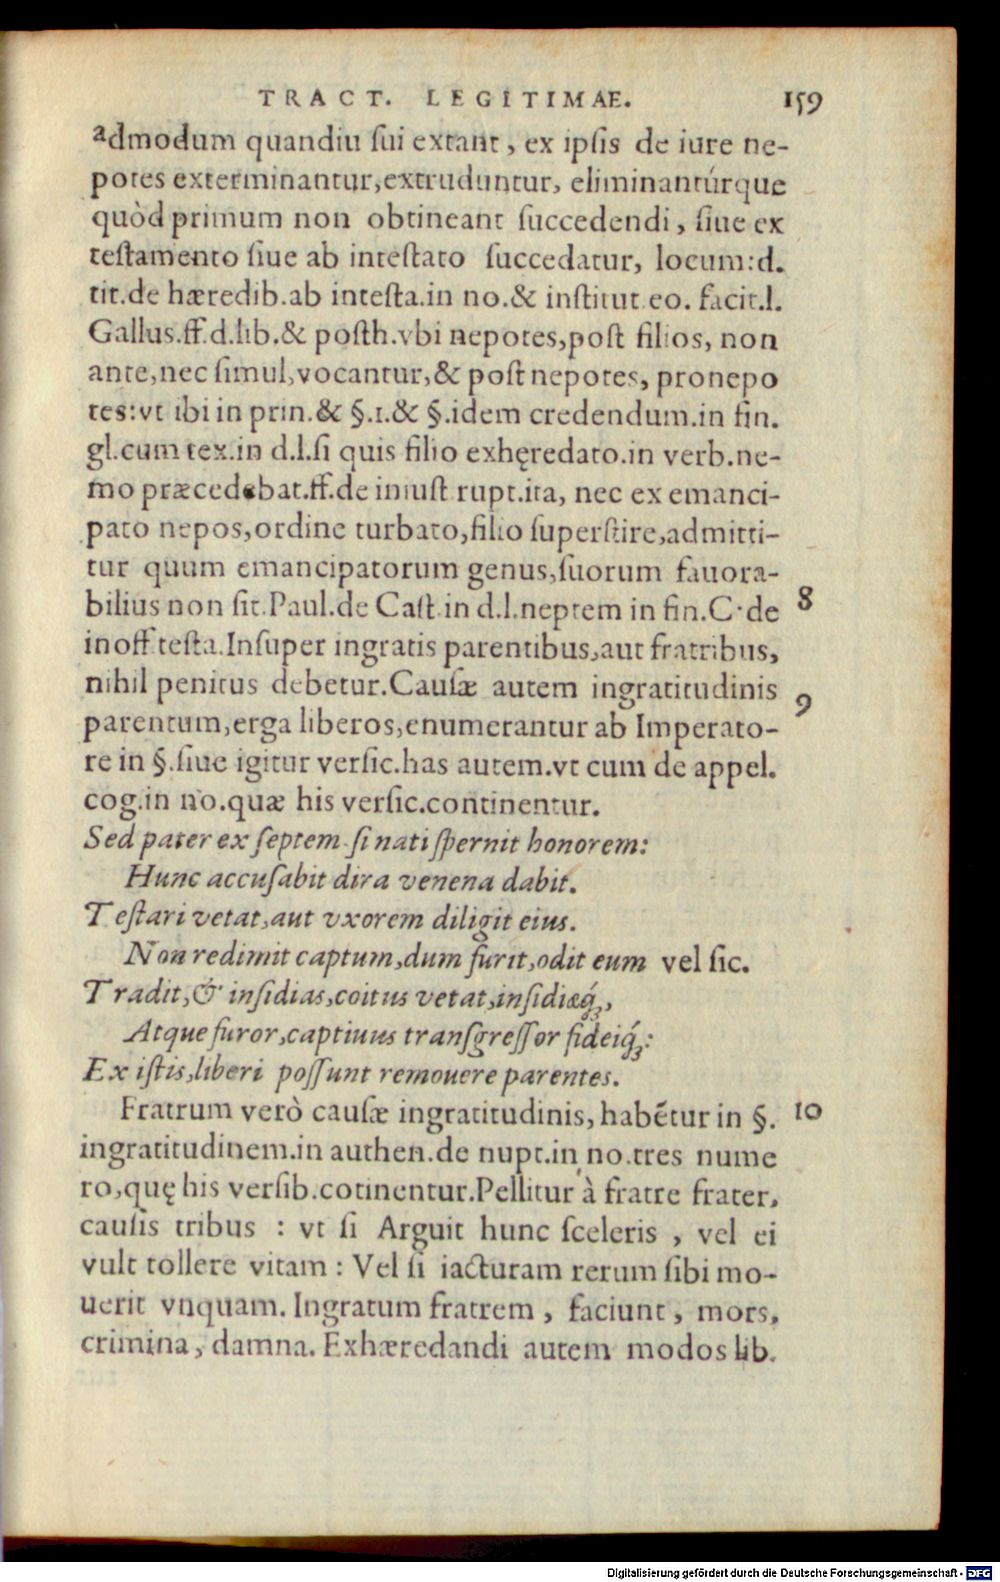 TRACT. LEGITIMAE. 159
admodum quandiu ſui extant, ex ipſis de iure ne-
potes exterminantur, extruduntur, eliminantúrque
quòd primum non obtineant ſuccedendi, ſiue ex
teſtamento ſiue ab inteſtato ſuccedatur, locum:d.
tit.de hæredib.ab inteſta.in no.& inſtitut eo. facit.l.
Gallus.ff.d.lib.& poſth.vbi nepotes,poſt filios, non
ante,nec ſimul,vocantur,& poſt nepotes, pronepo
tes:vt ibi in prin.& §.1.& §.idem credendum.in fin.
gl.cum tex.in d.l.ſi quis filio exhęredato.in verb.ne-
mo præcedebat.ff.de iniuſt rupt.ita, nec ex emanci-
pato nepos,ordine turbato,filio ſuperſtite,admitti-
tur quum emancipatorum genus,ſuorum fauora-
bilius non ſit.Paul.de Caſt.in d.l.neptem in fin.C.de 8
inoff.teſta.Inſuper ingratis parentibus,aut fratribus,
nihil penitus debetur.Cauſæ autem ingratitudinis 9
parentum,erga liberos,enumerantur ab Imperato-
re in §.ſiue igitur verſic.has autem.vt cum de appel.
cog.in no.quæ his verſic.continentur.
Sed pater ex ſeptem ſi nati ſpernit honorem:
Hunc accuſabit dira venena dabit.
Teſtari vetat,aut vxorem diligit eius.
Non redimit captum,dum furit,odit eum vel ſic.
Tradit,& inſidias,coitus vetat,inſidiæq́;,
Atque furor,captiuus tranſgreſſor fideiq́;:
Ex iſtis,liberi poſſunt remouere parentes.
Fratrum verò cauſæ ingratitudinis, habẽtur in §. 10
ingratitudinem.in authen.de nupt.in no.tres nume
ro,quę his verſib.cotinentur.Pellitur à fratre frater,
cauſis tribus : vt ſi Arguit hunc ſceleris , vel ei
vult tollere vitam : Vel ſi iacturam rerum ſibi mo-
uerit vnquam. Ingratum fratrem , faciunt , mors,
crimina, damna. Exhæredandi autem modos lib.
Digitalisierung gefördert durch die Deutsche Forschungsgemeinschaft - DFG